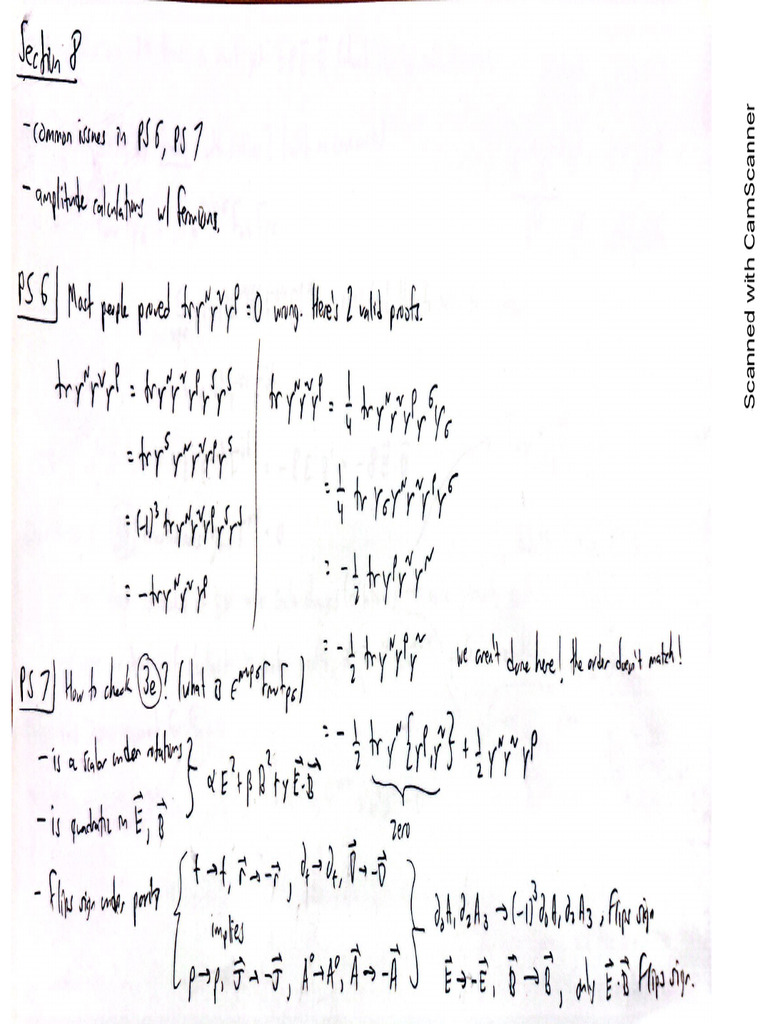 Section 8
- common issues in PS6, PS7
- amplitude calculations w/ fermions.
PS6 | Most people proved tr γ^μ γ^ν γ^ρ = 0 wrong. Here's 2 valid proofs.
tr γ^μ γ^ν γ^ρ = tr γ^μ γ^ν γ^ρ γ^5 γ^5
= tr γ^5 γ^μ γ^ν γ^ρ γ^5
= (-1)^3 tr γ^μ γ^ν γ^ρ γ^5 γ^5
= -tr γ^μ γ^ν γ^ρ
tr γ^μ γ^ν γ^ρ = 1/4 tr γ^μ γ^ν γ^ρ γ^σ γ_σ
= 1/4 tr γ_σ γ^μ γ^ν γ^ρ γ^σ
= -1/2 tr γ^ρ γ^ν γ^μ
= -1/2 tr γ^μ γ^ρ γ^ν we aren't done here! the order doesn't match!
= -1/2 tr γ^μ {γ^ρ, γ^ν} + 1/2 γ^μ γ^ν γ^ρ
zero
PS7 | How to check (3e)? (what is ε^μνρσ F_μν F_ρσ)
- is a scalar under rotations
- is quadratic in E⃗, B⃗
} αE² + βB² + γE⃗·B⃗
- flips sign under parity
{ t → t, r⃗ → -r⃗, ∂_t → ∂_t, ∇⃗ → -∇⃗
implies
ρ → ρ, J⃗ → -J⃗, A⁰ → A⁰, A⃗ → -A⃗ }
∂_0 A_1 ∂_2 A_3 → (-1)^3 ∂_0 A_1 ∂_2 A_3, flips sign
E⃗ → -E⃗, B⃗ → B⃗, only E⃗·B⃗ flips sign.
Scanned with CamScanner